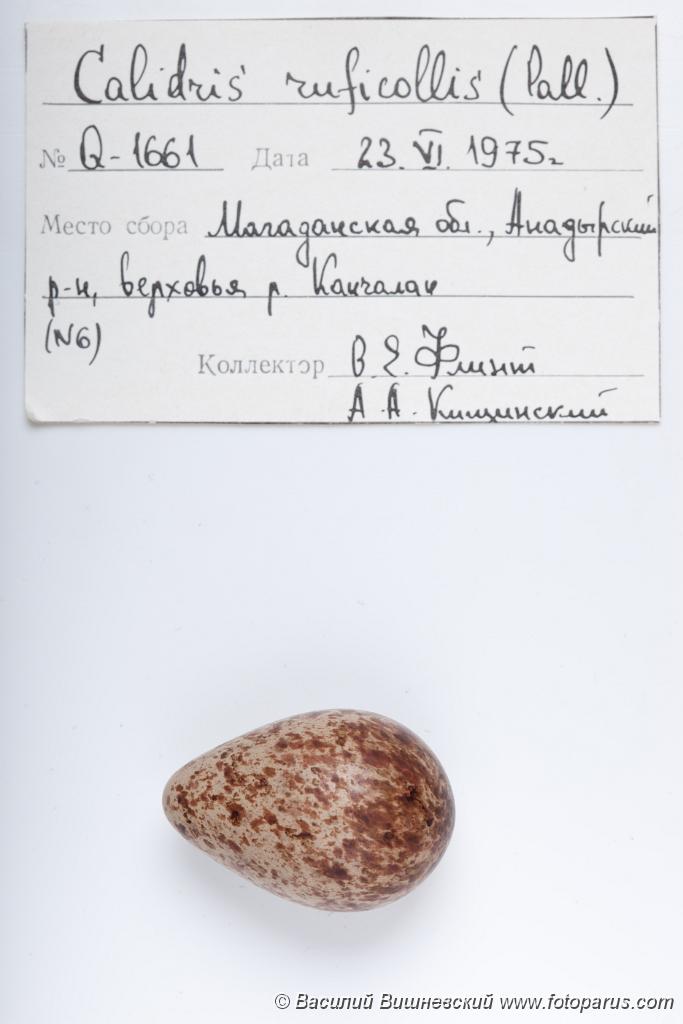 Calidris ruficollis (Pall.)
№ Q-1661 Дата 23.VI.1975г.
Место сбора Магаданская обл., Анадырский
р-н, верховья р. Канчалан
(N6)
Коллектор В.Е. Флинт
А.А. Кищинский
© Василий Вишневский www.fotoparus.com